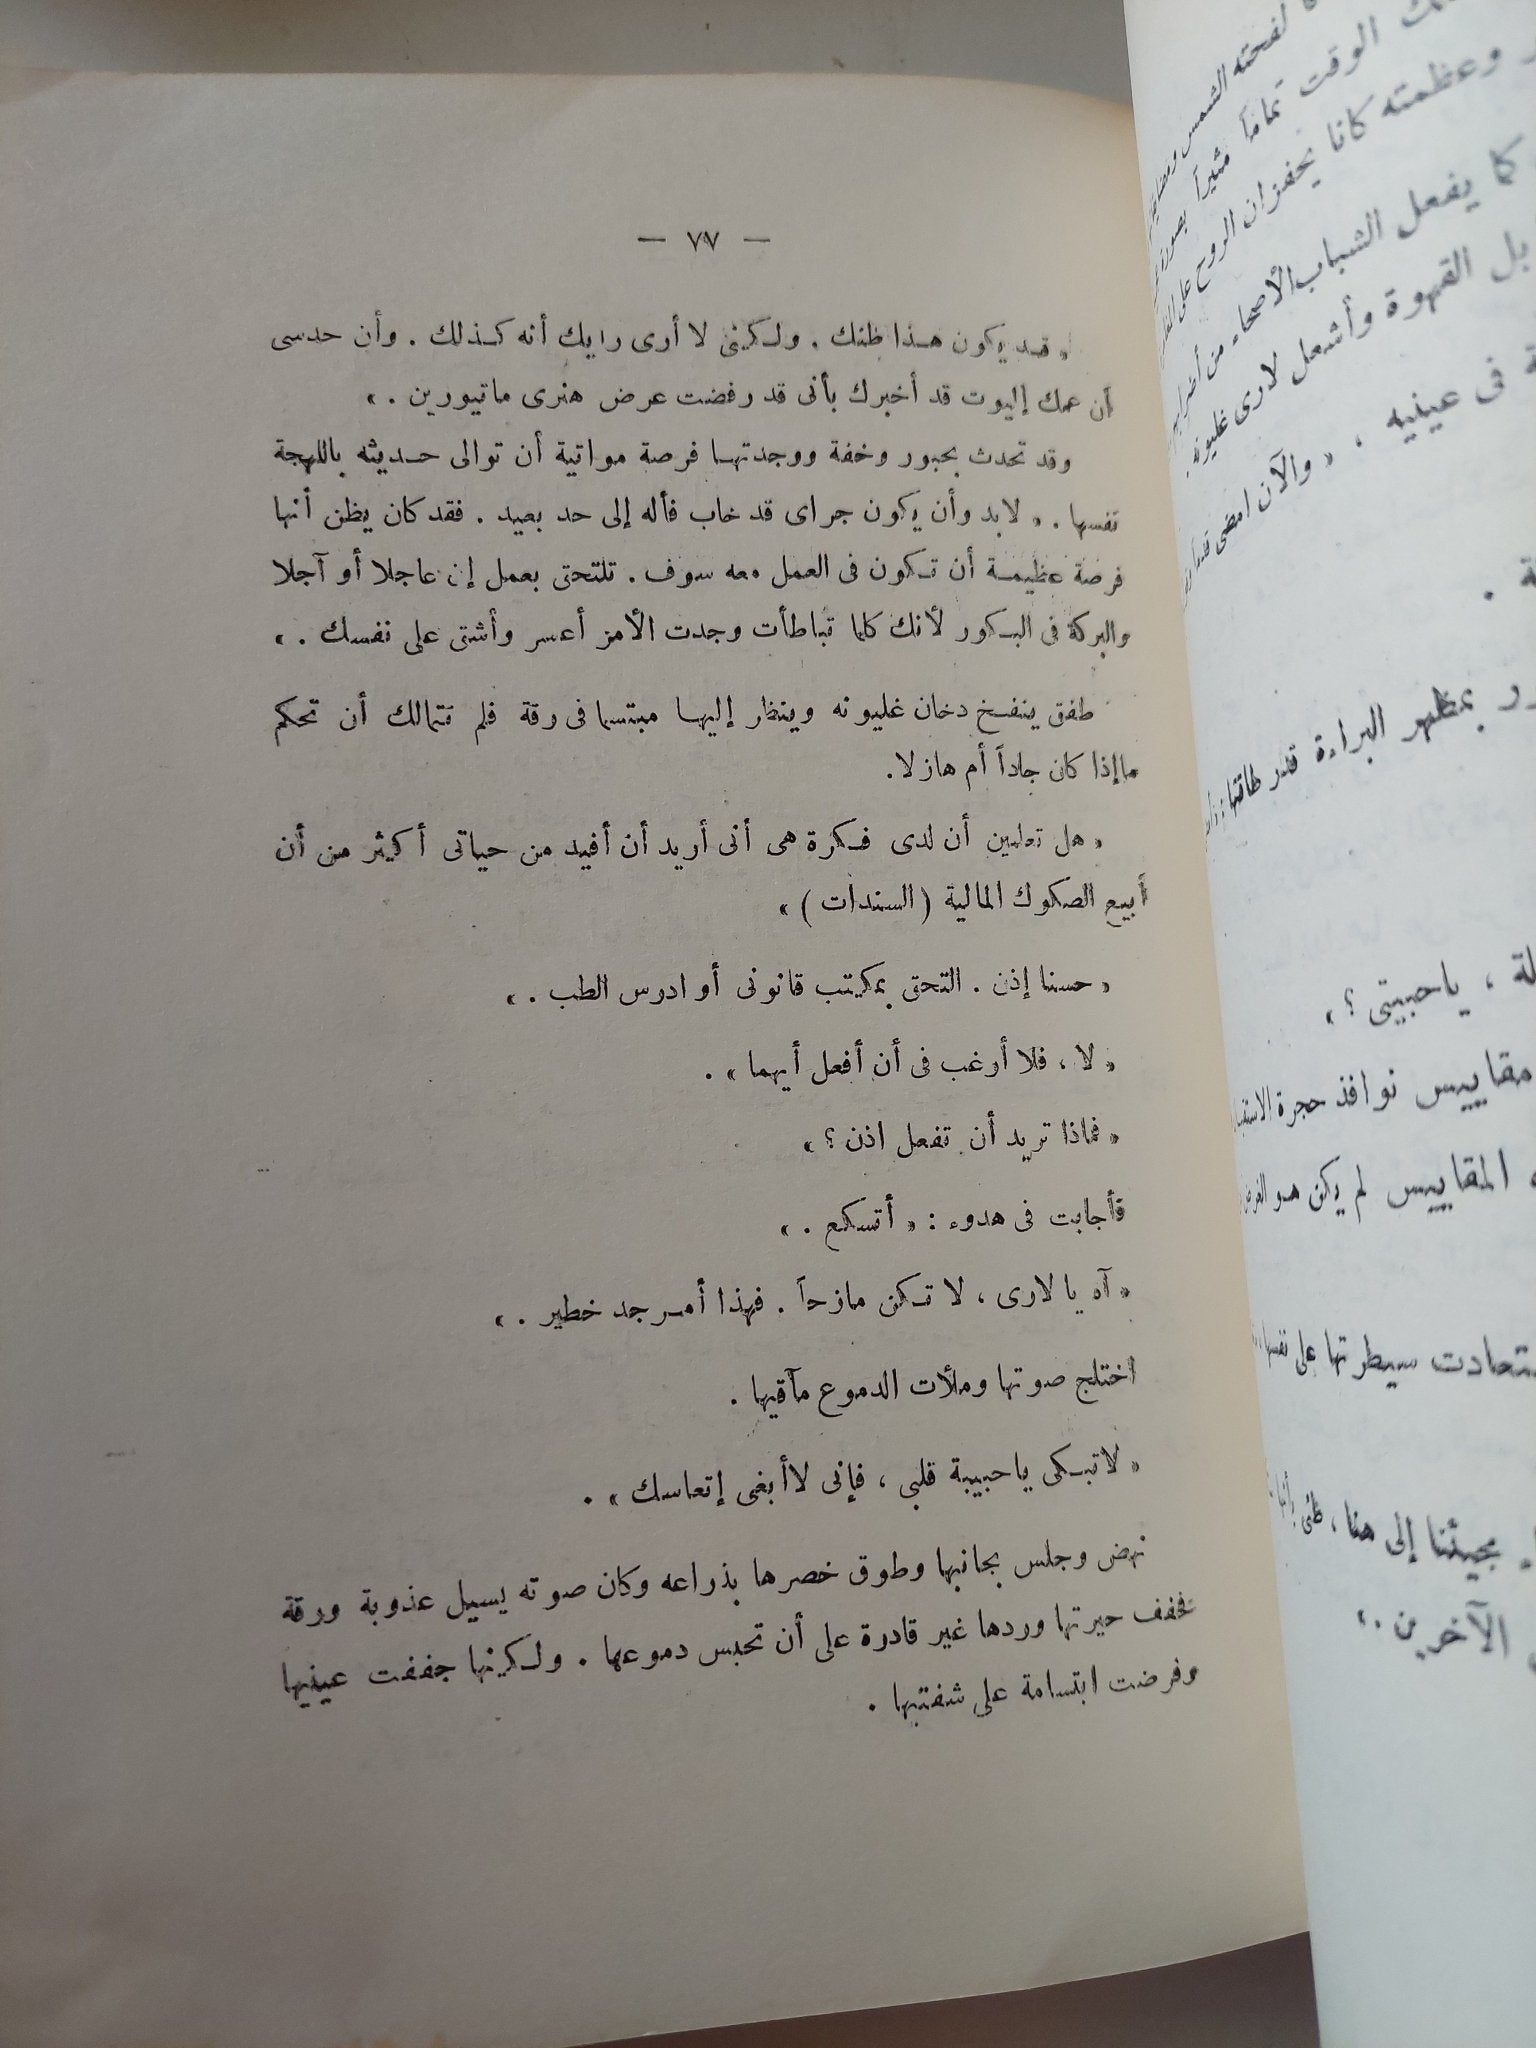 — ٧٧ —
« قد يكون هذا ظنك . ولكنى لا أرى رايك أنه كذلك . وأن حدسى
أن عمك إليوت قد أخبرك بأنى قد رفضت عرض هنرى ماتيورين . »
وقد تحدث بحبور وخفة ووجدتها فرصة مواتية أن توالى حديثه باللهجة
نفسها . « لابد وأن يكون جراى قد خاب فأله إلى حد بعيد . فقد كان يظن أنها
فرصة عظيمة أن تكون فى العمل معه سوف . تلتحق بعمل إن عاجلا أو آجلا
والبركة فى البكور لأنك كلما تباطأت وجدت الأمر أعسر وأشق على نفسك . »
طفق ينفخ دخان غليونه وينظر إليها مبتسما فى رقة فلم تتمالك أن تحكم
ماإذا كان جاداً أم هازلا.
« هل تعلمين أن لدى فكرة هى أنى أريد أن أفيد من حياتى أكثر من أن
أبيع الصكوك المالية ( السندات ) »
« حسنا إذن . التحق بمكتب قانونى أو ادرس الطب . »
« لا ، فلا أرغب فى أن أفعل أيهما » .
« فماذا تريد أن تفعل اذن ؟ »
فأجابت فى هدوء : « أتسكع . »
« آه يا لارى ، لا تكن مازحاً . فهذا أمر جد خطير . »
اختلج صوتها وملأت الدموع مآقيها .
« لاتبكى ياحبيبة قلبى ، فإنى لاأبغى إتعاسك » .
نهض وجلس بجانبها وطوق خصرها بذراعه وكان صوته يسيل عذوبة ورقة
نخفف حيرتها وردها غير قادرة على أن تحبس دموعها . ولكنها جففت عينيها
وفرضت ابتسامة على شفتيها .
لفحته الشمس
الوقت تماماً مثيراً بصورة
وعظمته كانا يحفزان الروح على
كما يفعل الشباب الأصحاء من
بل القهوة وأشعل لارى غليونه .
فى عينيه . « والآن امضى قدماً
بمظهر البراءة قدر طاقتها
، ياحبيبتى ؟ »
مقاييس نوافذ حجرة
المقاييس لم يكن هو
سيطرتها على نفسها
مجيئنا إلى هنا ، ظنى بأنها
الآخرين . »